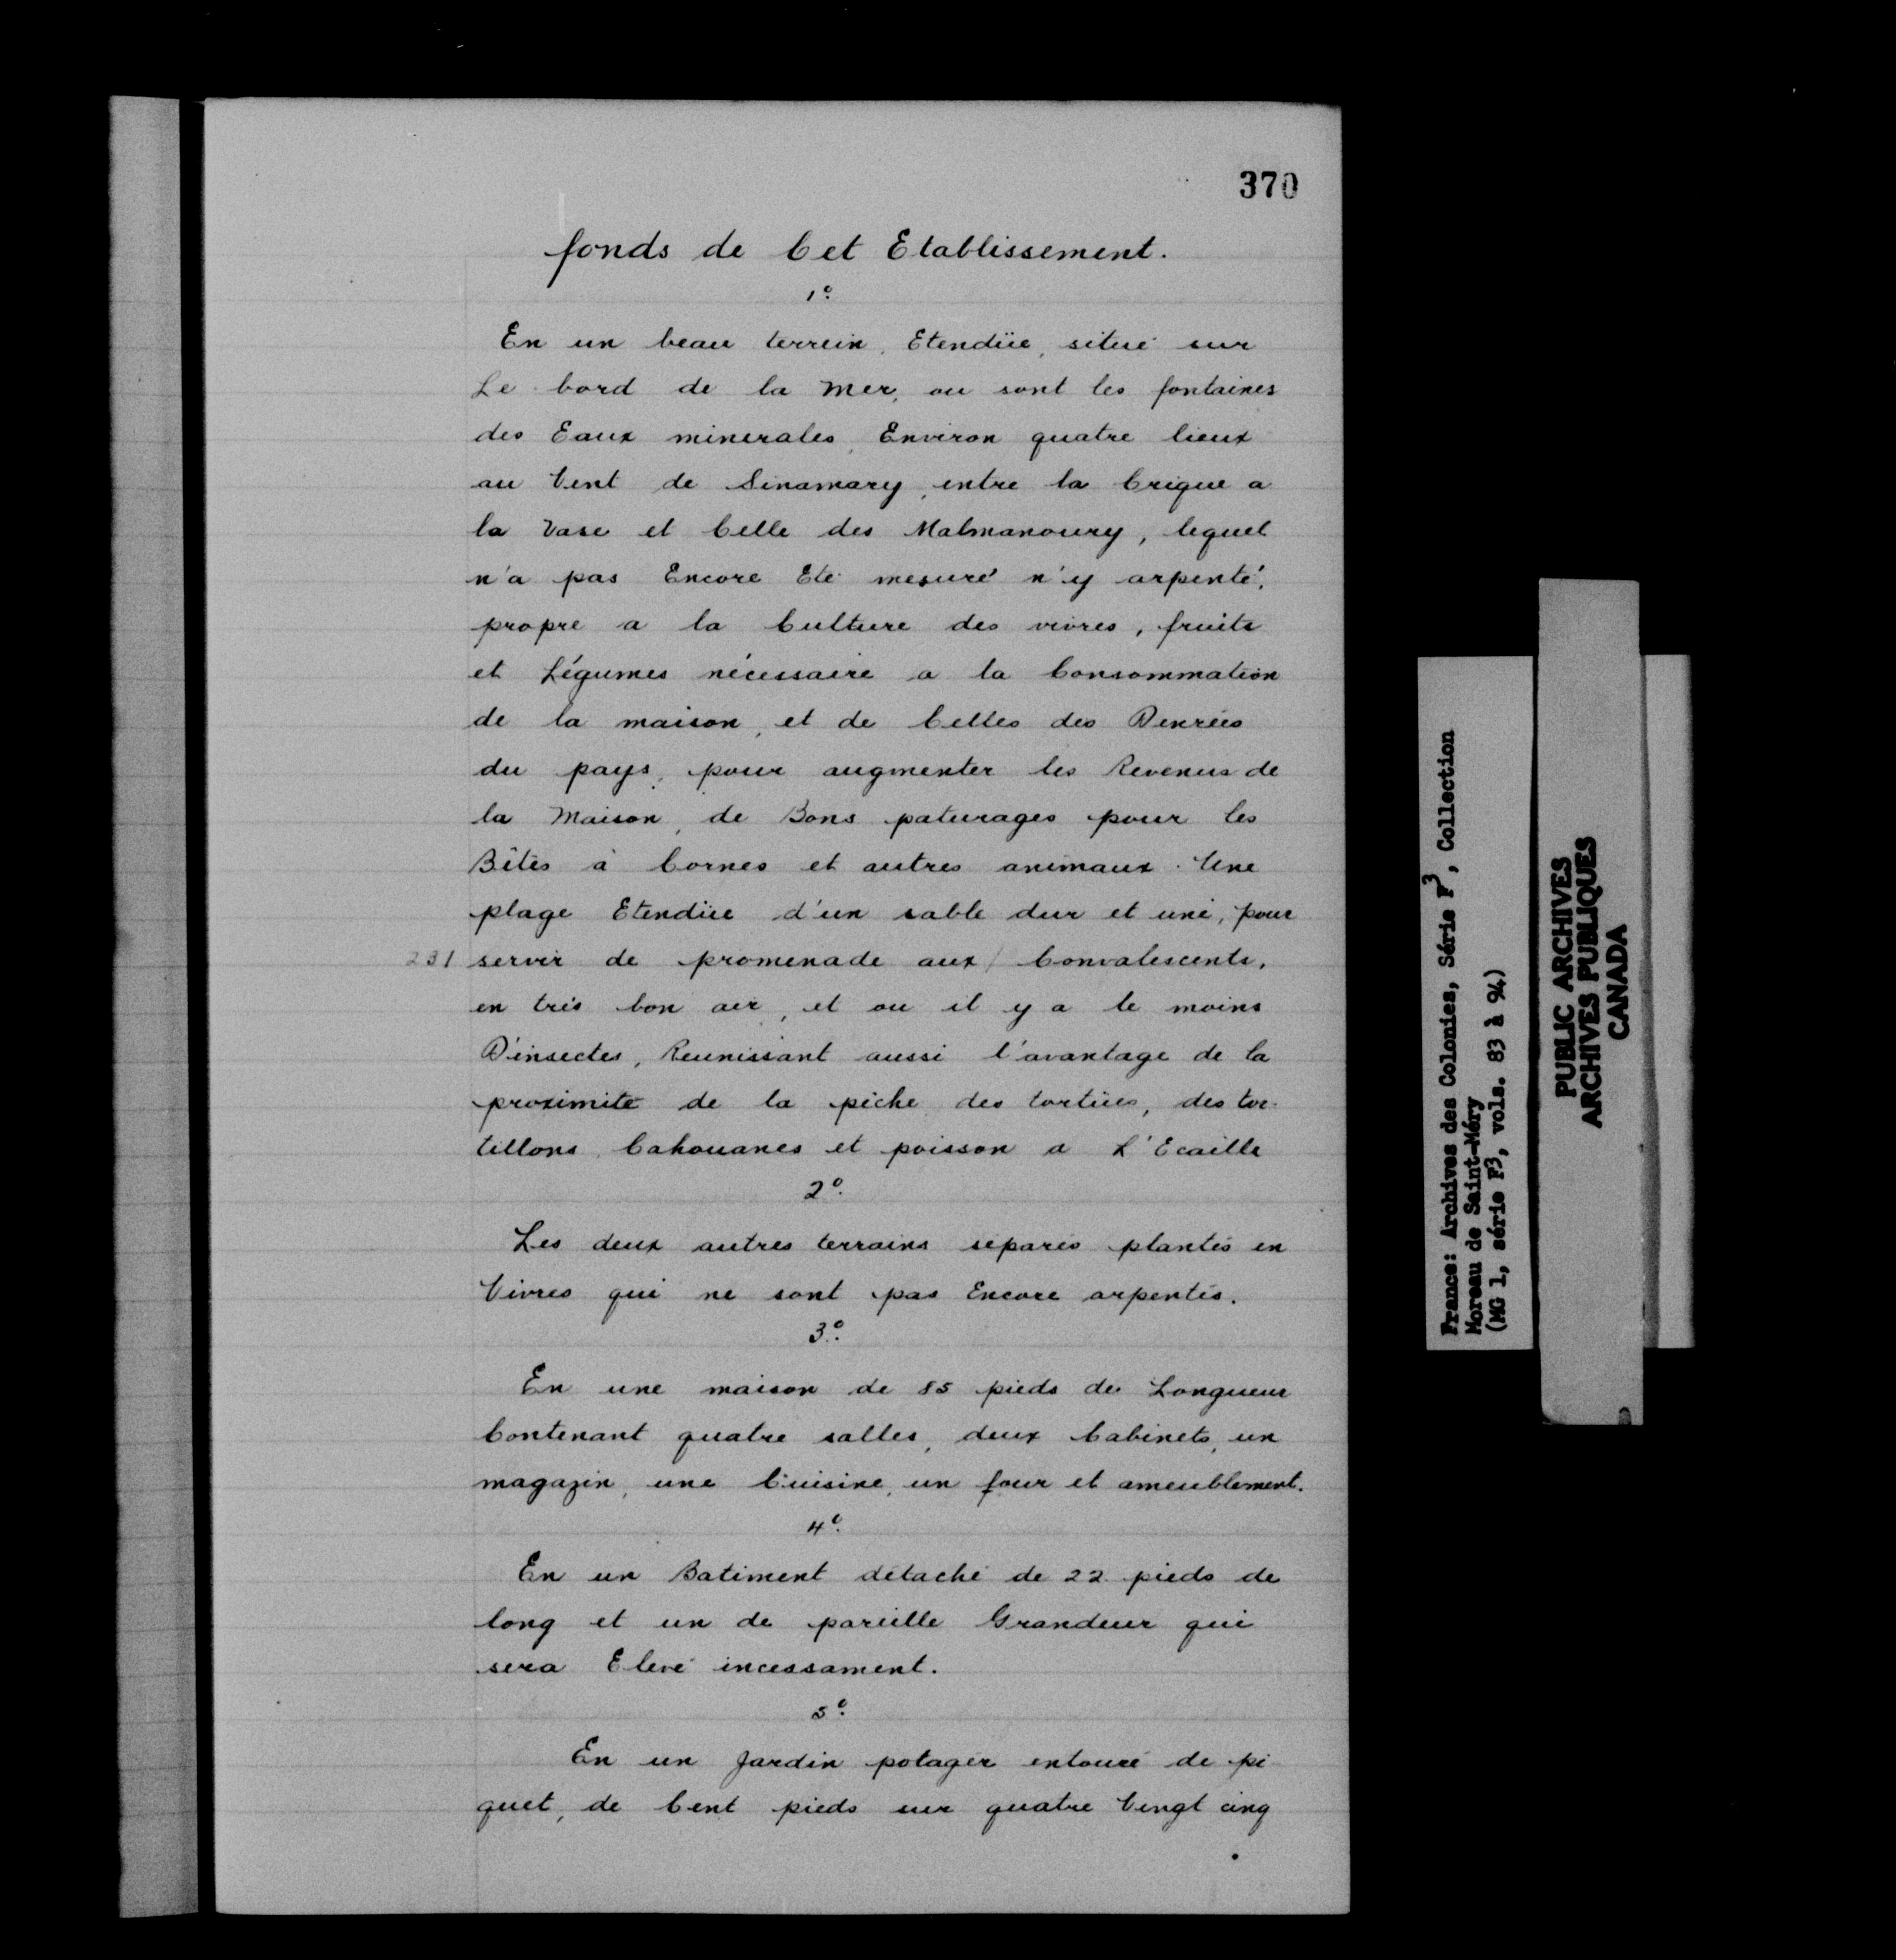 370
fonds de Cet Etablissement.
1º.
En un beau terrein, Etendüe, situé sur
Le bord de la Mer, ou sont les fontaines
des Eaux minerales, Environ quatre lieux
au Vent de Sinamary, entre la Crique a
la Vase et Celle des Malmanoury, lequel
n'a pas Encore Eté mesuré n'y arpenté,
propre a la Culture des vivres, fruits
et Légumes nécessaire a la Consommation
de la maison, et de Celles des Denrées
du pays, pour augmenter les Revenus de
la Maison, de Bons paturages pour les
Bêtes à Cornes et autres animaux. Une
plage Etendüe d'un sable dur et uni, pour
231 servir de promenade aux / Convalescents,
en très bon air, et ou il y a le moins
D'insectes, Reunissant aussi l'avantage de la
proximité de la pêche des tortües, des tor-
tillons, Cahouanes et poisson a L'Ecaille
2º.
Les deux autres terrains séparés plantés en
Vivres qui ne sont pas Encore arpentés.
3º.
En une maison de 85 pieds de Longueur
Contenant quatre salles, deux Cabinets, un
magazin, une Cuisine, un four et ameublement.
4º.
En un Batiment détaché de 22 pieds de
long et un de pareille Grandeur qui
sera Elevé incessament.
5º.
En un Jardin potager entouré de pi-
quet, de Cent pieds sur quatre Vingt cinq
France: Archives des Colonies, Série F3, Collection
Moreau de Saint-Méry
(MG 1, série F3, vols. 83 à 94)
PUBLIC ARCHIVES
ARCHIVES PUBLIQUES
CANADA